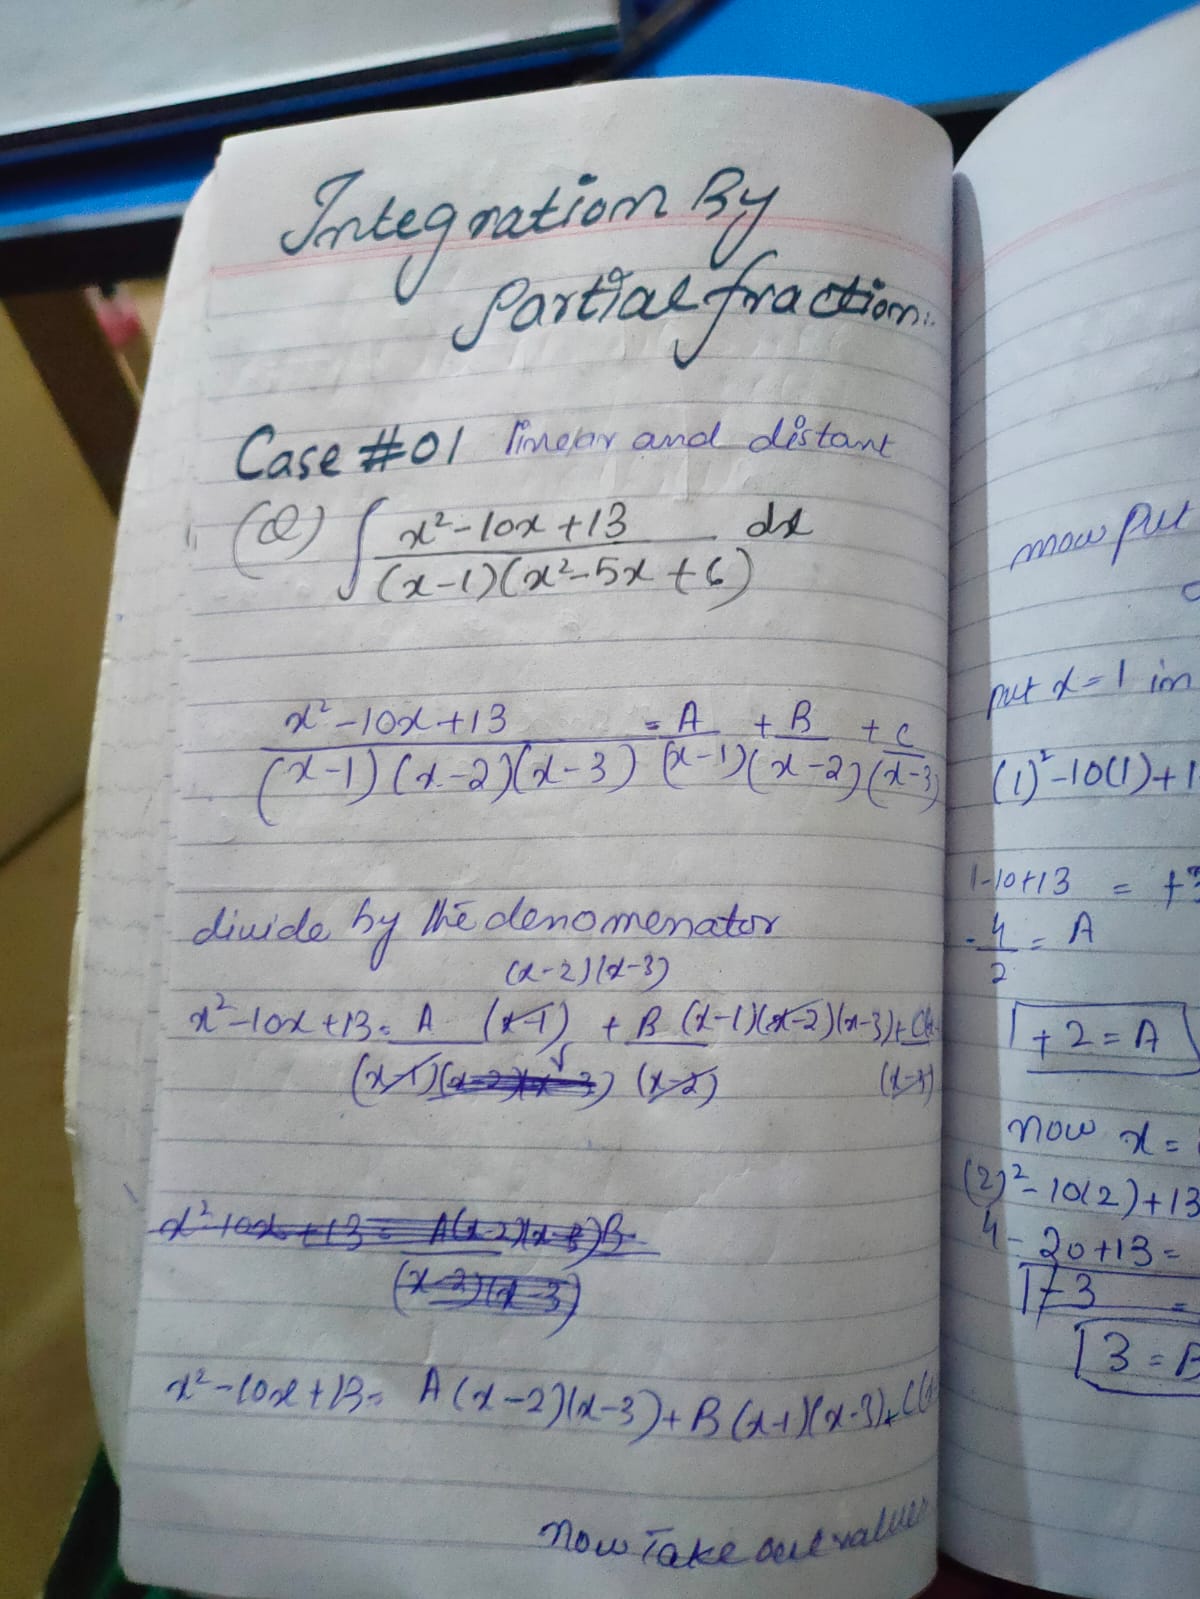 Integration By
Partial fraction:.
Case #01 linear and distant
(Q) ∫ x²-10x+13 dx
(x-1)(x²-5x+6)
x²-10x+13 = A + B + C
(x-1)(x-2)(x-3) (x-1)(x-2)(x-3)
divide by the denomenator
(x-2)(x-3)
x²-10x+13= A (x-1) + B (x-1)(x-2)(x-3)+ C(x-
(x-1)(x-2)(x-3) (x-2) (x-3)
x²-10x+13= A(x-2)(x-3)B
(x-2)(x-3)
x²-10x+13= A(x-2)(x-3)+B(x-1)(x-3)+C(x-
now Take out values
now put
put x=1 in
(1)²-10(1)+1
1-10+13 = +2
-4/2 = A
+2=A
now x=
(2)²-10(2)+13
4-20+13=
+3 =
3=B